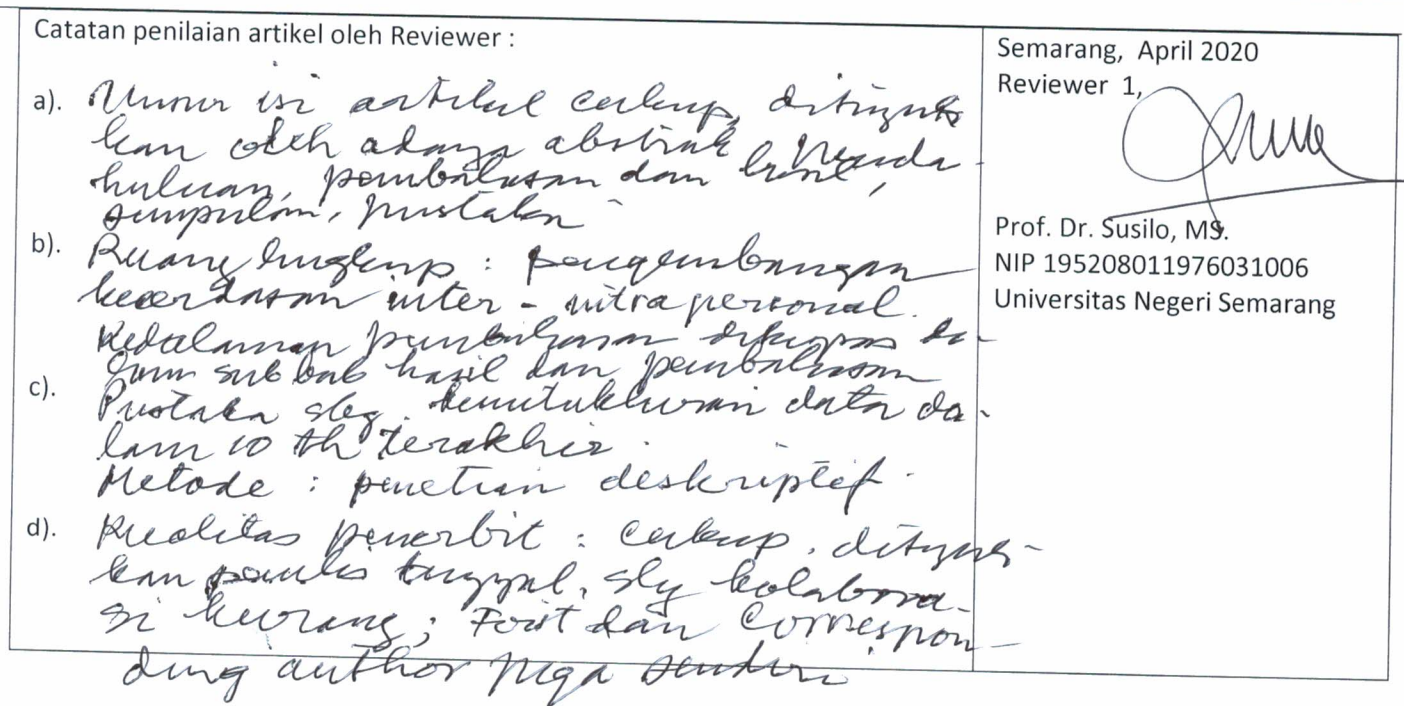 Catatan penilaian artikel oleh Reviewer :
a). Unsur isi artikel cukup, ditunjuk
kan oleh adanya abstrak, Penda-
huluan, pembahasan dan hasil,
simpulan, pustaka
b). Ruang lingkup : pengembangan
kecerdasan inter - intrapersonal.
Kedalaman pembahasan dikupas da-
lam sub bab hasil dan pembahasan
c). Pustaka sbg. kemutakhiran data da-
lam 10 th terakhir.
Metode : penetian deskriptif.
d). Kualitas penerbit : cukup. ditunjuk-
kan penulis tunggal, sbg kolabora-
si kurang; First dan Correspon-
ding author juga sendiri
Semarang, April 2020
Reviewer 1,
Prof. Dr. Susilo, MS.
NIP 195208011976031006
Universitas Negeri Semarang